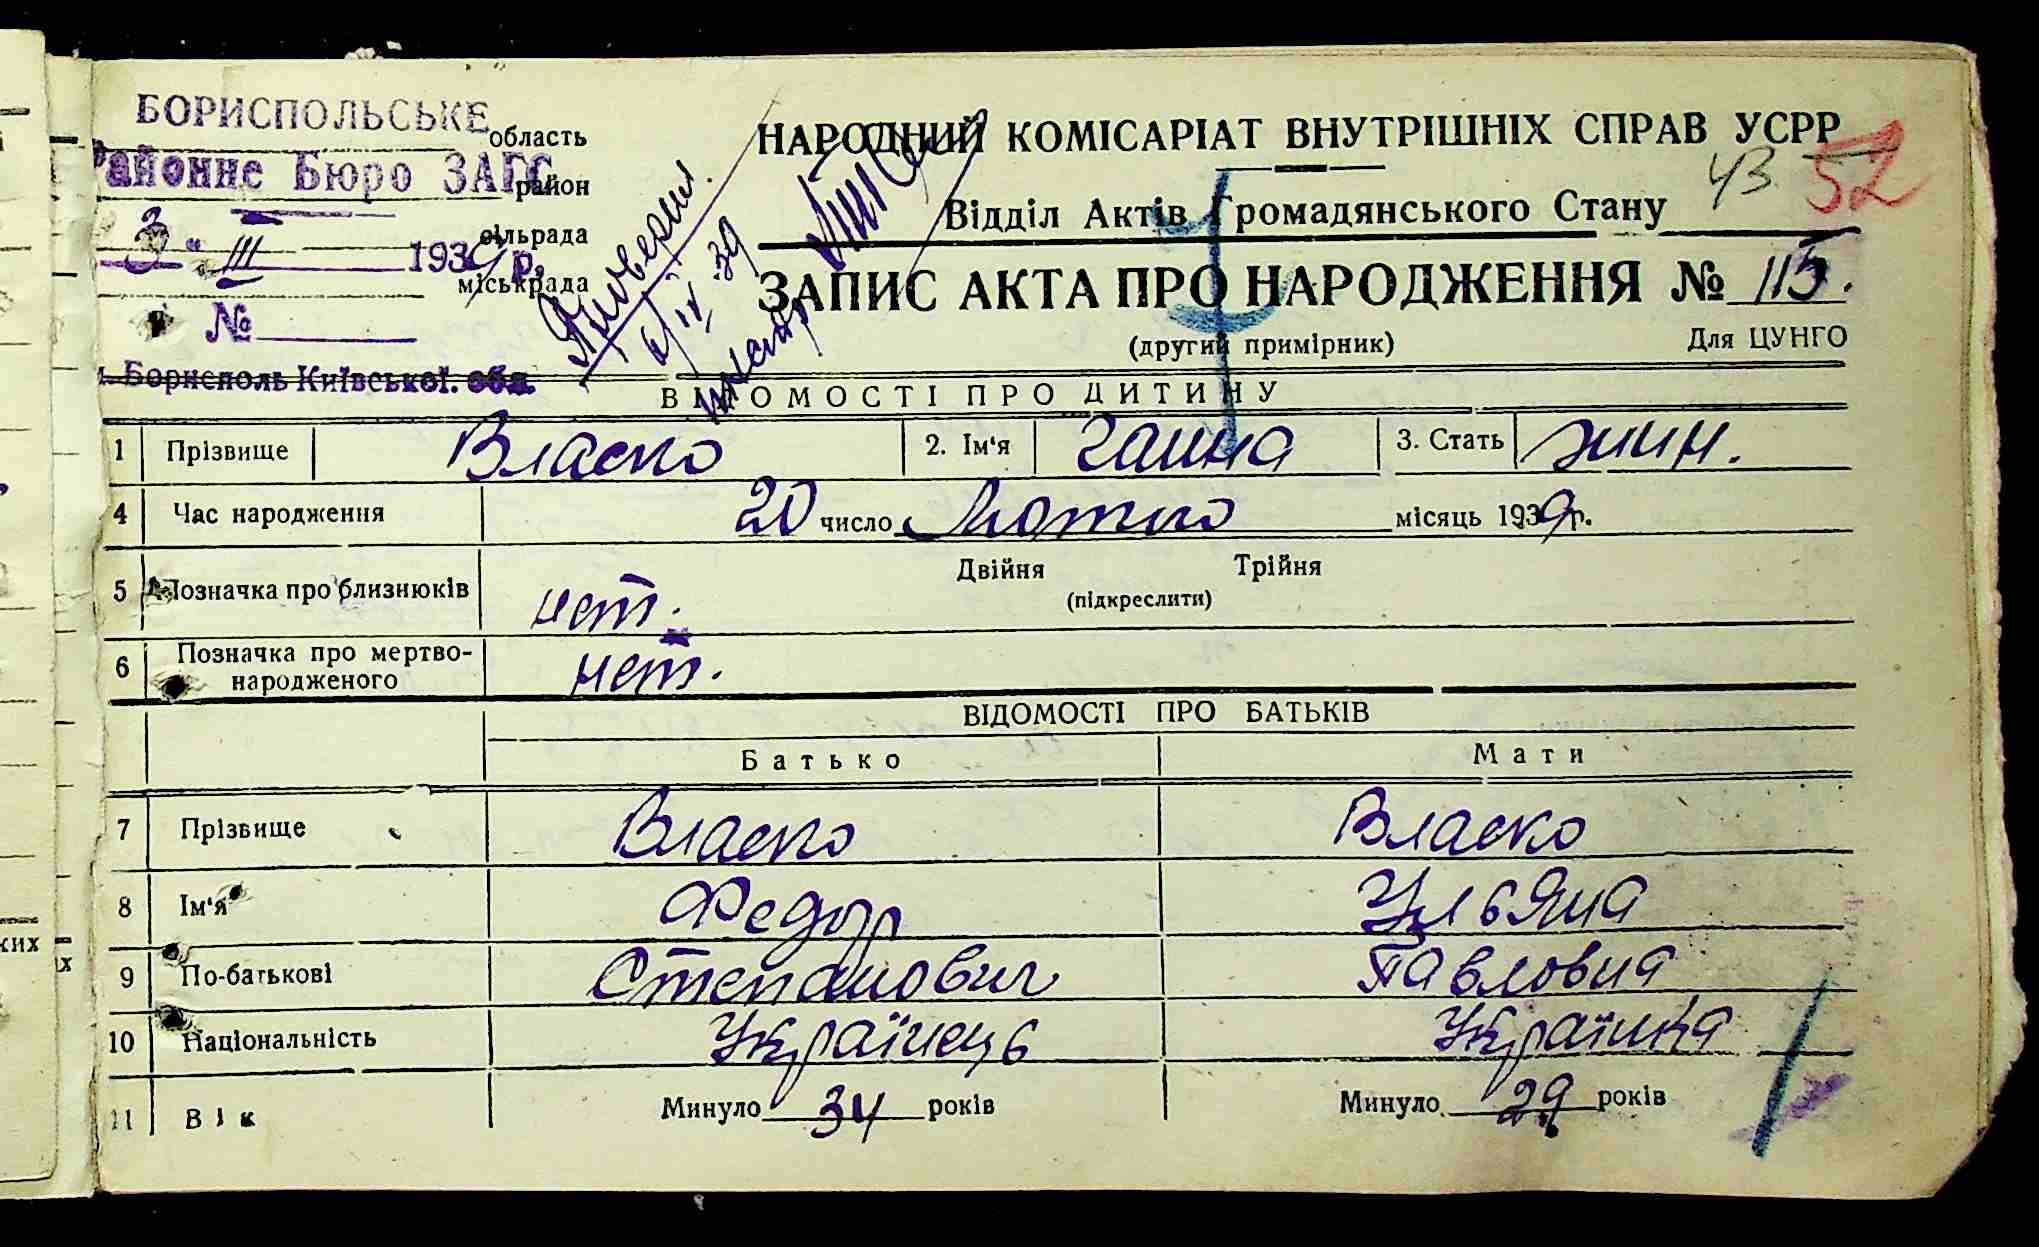 БОРИСПОЛЬСЬКЕ область
Районне Бюро ЗАГС район
3 " III 1939 р. сільрада
міськрада
№
м. Борисполь Київської обл.
Проверил.
6/IV.39
43 52
НАРОДНИЙ КОМІСАРІАТ ВНУТРІШНІХ СПРАВ УСРР
Відділ Актів Громадянського Стану
ЗАПИС АКТА ПРО НАРОДЖЕННЯ № 115.
(другий примірник) Для ЦУНГО
ВІДОМОСТІ ПРО ДИТИНУ
1 Прізвище Власко 2. Ім'я Ганна 3. Стать жин.
4 Час народження 20 число Лютого місяць 1939 р.
5 Позначка про близнюків нет. Двійня Трійня
(підкреслити)
6 Позначка про мертво-
народженого нет.
ВІДОМОСТІ ПРО БАТЬКІВ
Батько Мати
7 Прізвище Власко Власко
8 Ім'я Федор Ульяна
9 По-батькові Степанович Павловна
10 Національність Українець Українка
11 Вік Минуло 34 років Минуло 29 років
ких
х